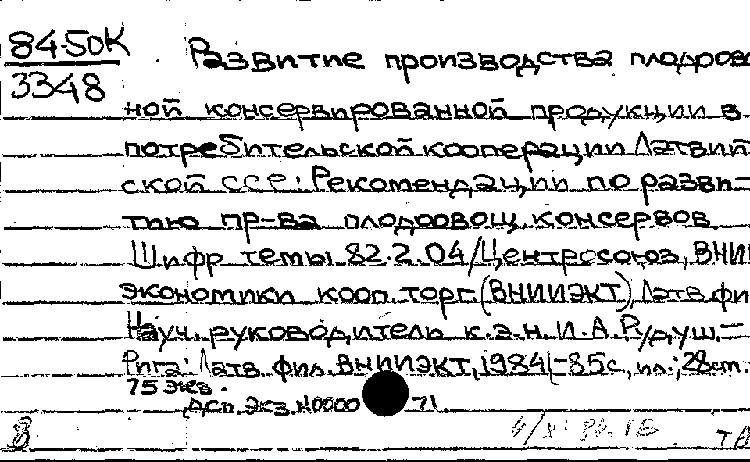 84-50К
3348
Развитие производства плодоово
ной консервированной продукции в
потребительской кооперации Латвий
ской ССР: Рекомендации по разви-
тию пр-ва плодоовощ. консервов
Шифр темы 82.2.04/Центросоюз, ВНИИ
экономики кооп. торг. (ВНИИЭКТ), Латв. фи
Науч. руководитель к.э.н. И.А.
Рига: Латв. фил. ВНИИЭКТ, 1984.-85с., ил.; 28см.
75 экз.
ДСП. Экз. N0000 71
В